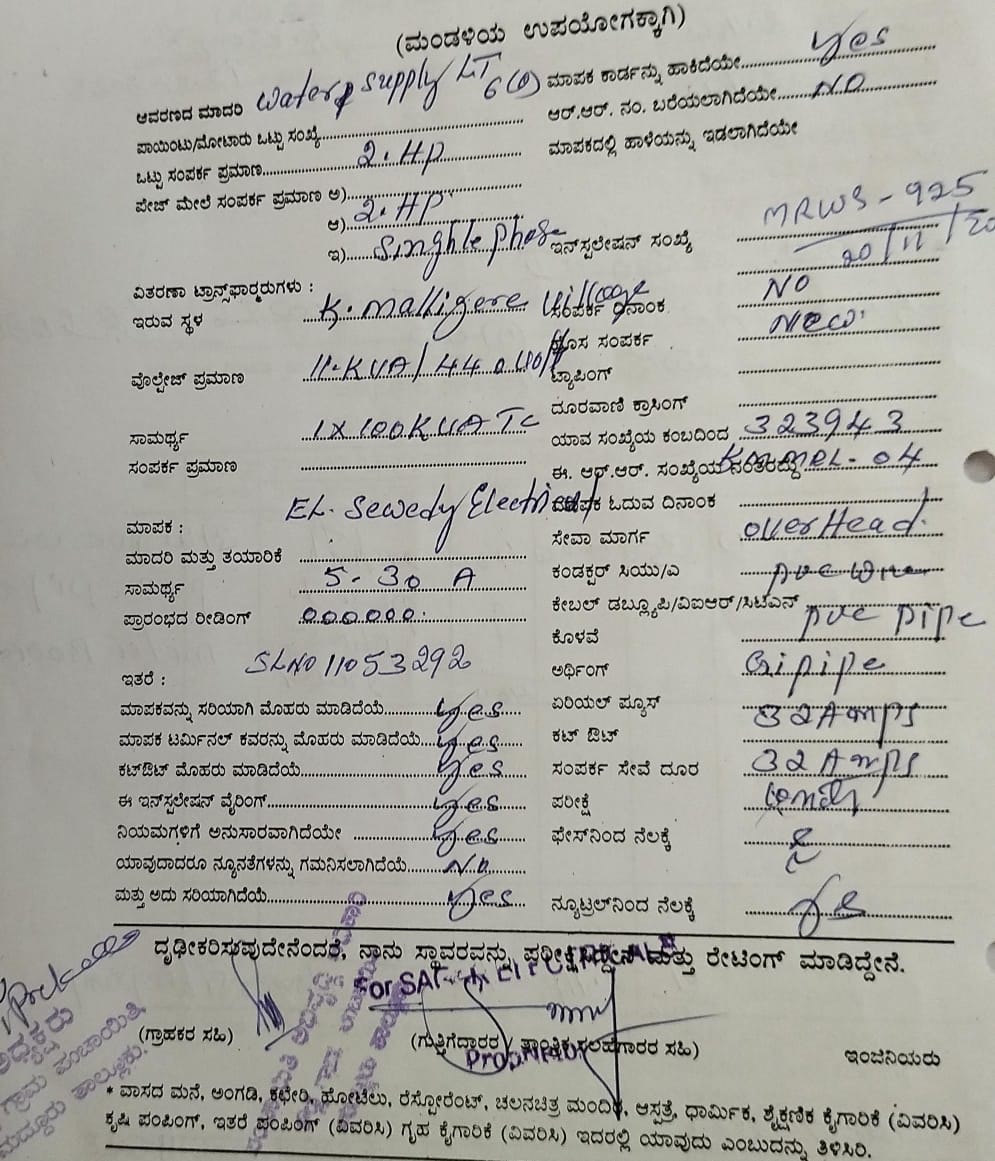 (ಮಂಡಳಿಯ ಉಪಯೋಗಕ್ಕಾಗಿ)
ಆವರಣದ ಮಾದರಿ Water supply LT 6(a) ಮಾಪಕ ಕಾರ್ಡನ್ನು ಹಾಕಿದೆಯೇ Yes
ಪಾಯಿಂಟು/ಮೋಟಾರು ಒಟ್ಟು ಸಂಖ್ಯೆ ಆರ್.ಆರ್. ನಂ. ಬರೆಯಲಾಗಿದೆಯೇ No
ಒಟ್ಟು ಸಂಪರ್ಕ ಪ್ರಮಾಣ 2.HP ಮಾಪಕದಲ್ಲಿ ಹಾಳೆಯನ್ನು ಇಡಲಾಗಿದೆಯೇ
ಪೇಜ್ ಮೇಲೆ ಸಂಪರ್ಕ ಪ್ರಮಾಣ ಅ)
ಆ) 2.HP
ಇ) Singhle phase ಇನ್ಸ್‌ಲೇಷನ್ ಸಂಖ್ಯೆ MRWS-925
20/11/20
ವಿತರಣಾ ಟ್ರಾನ್ಸ್‌ಫಾರ್‍ಮರುಗಳು :
ಇರುವ ಸ್ಥಳ K.malligere Village ಸಂಪರ್ಕ ದಿನಾಂಕ NO
ಹೊಸ ಸಂಪರ್ಕ New
ವೊಲ್ಟೇಜ್ ಪ್ರಮಾಣ 11.KVA/440 ಟ್ಯಾಪಿಂಗ್
ದೂರವಾಣಿ ಕ್ರಾಸಿಂಗ್
ಸಾಮರ್ಥ್ಯ 1X100KVA TC ಯಾವ ಸಂಖ್ಯೆಯ ಕಂಬದಿಂದ 323943
ಸಂಪರ್ಕ ಪ್ರಮಾಣ ಈ. ಆರ್.ಆರ್. ಸಂಖ್ಯೆಯ ನಂತರದ್ದು - 04
EL. Sewedy Electrical ಮಾಪಕ ಓದುವ ದಿನಾಂಕ
ಮಾಪಕ : ಸೇವಾ ಮಾರ್ಗ overHead.
ಮಾದರಿ ಮತ್ತು ತಯಾರಿಕೆ
ಸಾಮರ್ಥ್ಯ 5-30 A ಕಂಡಕ್ಟರ್ ಸಿಯು/ಎ pvc wire
ಪ್ರಾರಂಭದ ರೀಡಿಂಗ್ 000000. ಕೇಬಲ್ ಡಬ್ಲ್ಯೂಪಿ/ವಿಐಆರ್/ಸಿಟಿಎನ್
ಕೊಳವೆ pvc pipe
ಇತರೆ : SLNO 11053292 ಅರ್ಥಿಂಗ್ Gi pipe
ಮಾಪಕವನ್ನು ಸರಿಯಾಗಿ ಮೊಹರು ಮಾಡಿದೆಯೆ Yes ಏರಿಯಲ್ ಫ್ಯೂಸ್ 32Amps
ಮಾಪಕ ಟರ್ಮಿನಲ್ ಕವರನ್ನು ಮೊಹರು ಮಾಡಿದೆಯೆ Yes ಕಟ್ ಔಟ್
ಕಟ್‌ಔಟ್ ಮೊಹರು ಮಾಡಿದೆಯೆ Yes ಸಂಪರ್ಕ ಸೇವೆ ದೂರ 32Amps
ಈ ಇನ್ಸ್‌ಲೇಷನ್ ವೈರಿಂಗ್ Yes ಪರೀಕ್ಷೆ
ನಿಯಮಗಳಿಗೆ ಅನುಸಾರವಾಗಿದೆಯೇ Yes ಫೇಸ್‌ನಿಂದ ನೆಲಕ್ಕೆ
ಯಾವುದಾದರೂ ನ್ಯೂನತೆಗಳನ್ನು ಗಮನಿಸಲಾಗಿದೆಯೆ No
ಮತ್ತು ಅದು ಸರಿಯಾಗಿದೆಯೆ Yes ನ್ಯೂಟ್ರಲ್‌ನಿಂದ ನೆಲಕ್ಕೆ
ದೃಢೀಕರಿಸುವುದೇನೆಂದರೆ, ನಾನು ಸ್ಥಾವರವನ್ನು ಪರೀಕ್ಷಿಸಿದ್ದೇನೆ ಮತ್ತು ರೇಟಿಂಗ್ ಮಾಡಿದ್ದೇನೆ.
For
(ಗ್ರಾಹಕರ ಸಹಿ) (ಗುತ್ತಿಗೆದಾರರ / ತಾಂತ್ರಿಕ ಸಲಹೆಗಾರರ ಸಹಿ) ಇಂಜಿನಿಯರು
ಅಧ್ಯಕ್ಷರು
ಗ್ರಾಮ ಪಂಚಾಯಿತಿ
ಮದ್ದೂರು ತಾಲ್ಲೂಕು.
* ವಾಸದ ಮನೆ, ಅಂಗಡಿ, ಕಛೇರಿ, ಹೋಟೆಲು, ರೆಸ್ಟೋರೆಂಟ್, ಚಲನಚಿತ್ರ ಮಂದಿರ, ಆಸ್ಪತ್ರೆ, ಧಾರ್ಮಿಕ, ಶೈಕ್ಷಣಿಕ ಕೈಗಾರಿಕೆ (ವಿವರಿಸಿ)
ಕೃಷಿ ಪಂಪಿಂಗ್, ಇತರೆ ಪಂಪಿಂಗ್ (ವಿವರಿಸಿ) ಗೃಹ ಕೈಗಾರಿಕೆ (ವಿವರಿಸಿ) ಇದರಲ್ಲಿ ಯಾವುದು ಎಂಬುದನ್ನು ತಿಳಿಸಿರಿ.